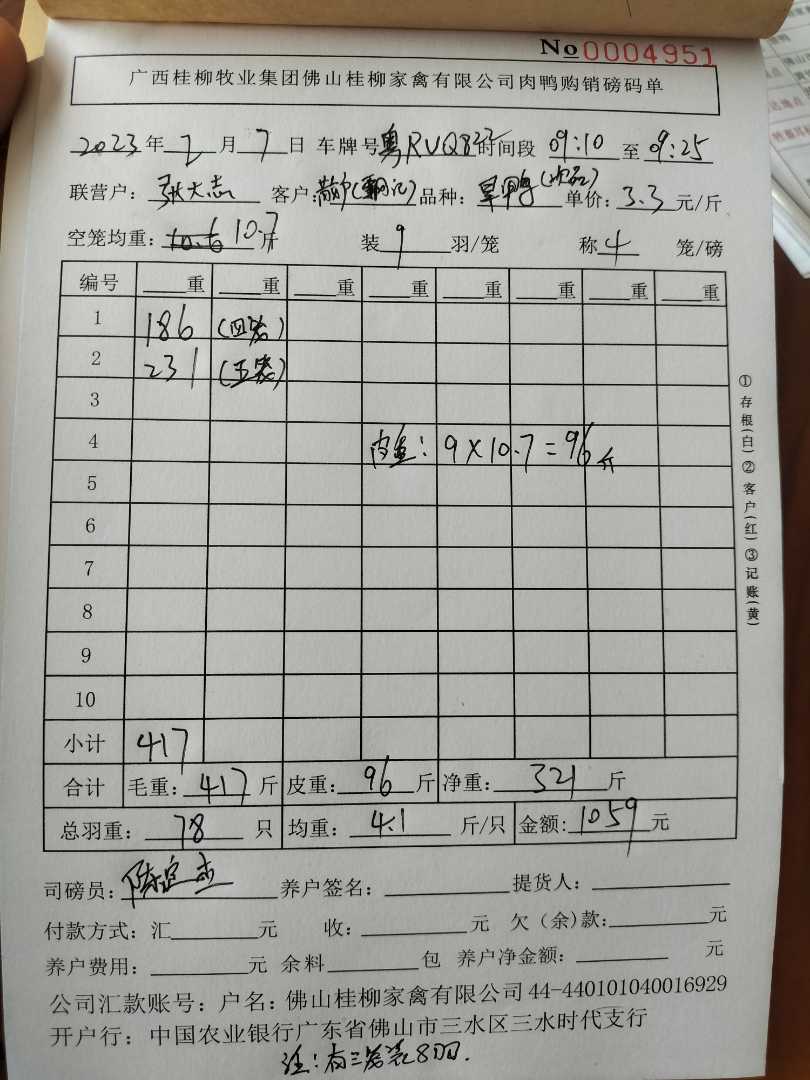 No 0004951
广西桂柳牧业集团佛山桂柳家禽有限公司肉鸭购销磅码单
2023年2月7日 车牌号粤RUQ822 时间段 09:10 至 09:25
联营户:张大志 客户:散户( 记) 品种: 鸭(次品) 单价:3.3元/斤
空笼均重:10.6 10.7斤 装9羽/笼 称4笼/磅
编号 重 重 重 重 重 重 重 重
1 186 (四笼)
2 231 (五笼)
3
4 皮重:9×10.7=96斤
5
6
7
8
9
10
小计 417
合计 毛重:417斤 皮重:96斤 净重:321斤
总羽重:78只 均重:4.1斤/只 金额:1059元
司磅员:陈定杰 养户签名: 提货人:
付款方式:汇 元 收: 元 欠(余)款: 元
养户费用: 元 余料 包 养户净金额: 元
公司汇款账号:户名:佛山桂柳家禽有限公司44-440101040016929
开户行:中国农业银行广东省佛山市三水区三水时代支行
注:有三笼装8羽.
①存根(白)②客户(红)③记账(黄)